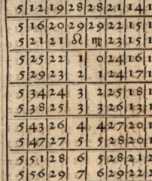 5 12 19 28 28 21 14
5 16 20 29 29 22 15
5 21 21 ♌ ♍ 23 15
5 25 22 1 0 24 16
5 29 23 2 1 24 17
5 34 24 3 2 25 18
5 38 25 3 3 26
5 43 26 4 4 27 20
5 47 27 5 5 28 20
5 51 28 6 5 28 21
5 56 29 7 6 29 22